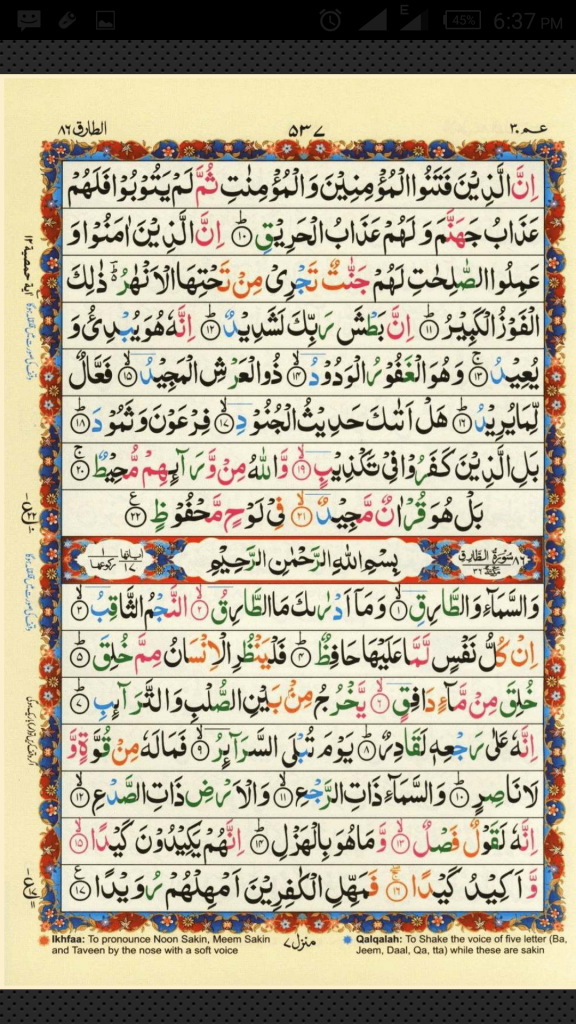 E 45% 6:37 PM
عـم ٣٠ ٥٣٧ الطارق ٨٦
اِنَّ الَّذِيۡنَ فَتَنُوا الۡمُؤۡمِنِيۡنَ وَ الۡمُؤۡمِنٰتِ ثُمَّ لَمۡ يَتُوۡبُوۡا فَلَهُمۡ
عَذَابُ جَهَنَّمَ وَ لَهُمۡ عَذَابُ الۡحَرِيۡقِ ۱۰ اِنَّ الَّذِيۡنَ اٰمَنُوۡا وَ
عَمِلُوا الصّٰلِحٰتِ لَهُمۡ جَنّٰتٌ تَجۡرِىۡ مِنۡ تَحۡتِهَا الۡاَنۡهٰرُ ذٰلِكَ
الۡفَوۡزُ الۡكَبِيۡرُ ۱۱ اِنَّ بَطۡشَ رَبِّكَ لَشَدِيۡدٌ ۱۲ اِنَّهٗ هُوَ يُبۡدِئُ وَ
يُعِيۡدُ ۱۳ وَ هُوَ الۡغَفُوۡرُ الۡوَدُوۡدُ ۱۴ ذُو الۡعَرۡشِ الۡمَجِيۡدُ ۱۵ فَعَّالٌ
لِّمَا يُرِيۡدُ ۱۶ هَلۡ اَتٰٮكَ حَدِيۡثُ الۡجُنُوۡدِ ۱۷ فِرۡعَوۡنَ وَ ثَمُوۡدَ ۱۸
بَلِ الَّذِيۡنَ كَفَرُوۡا فِىۡ تَكۡذِيۡبٍ ۱۹ وَّ اللّٰهُ مِنۡ وَّرَآٮِٕهِمۡ مُّحِيۡطٌ ۲۰
بَلۡ هُوَ قُرۡاٰنٌ مَّجِيۡدٌ ۲۱ فِىۡ لَوۡحٍ مَّحۡفُوۡظٍ ۲۲
٨٦ سُوۡرَةُ الطَّارِقِ مكية ٣٦ بِسۡمِ اللّٰهِ الرَّحۡمٰنِ الرَّحِيۡمِ اٰياتها ١٧ ركوعها ١
وَ السَّمَآءِ وَ الطَّارِقِ ۱ وَ مَاۤ اَدۡرٰٮكَ مَا الطَّارِقُ ۲ النَّجۡمُ الثَّاقِبُ ۳
اِنۡ كُلُّ نَفۡسٍ لَّمَّا عَلَيۡهَا حَافِظٌ ۴ فَلۡيَنۡظُرِ الۡاِنۡسَانُ مِمَّ خُلِقَ ۵
خُلِقَ مِنۡ مَّآءٍ دَافِقٍ ۶ يَّخۡرُجُ مِنۡۢ بَيۡنِ الصُّلۡبِ وَ التَّرَآٮِٕبِ ۷
اِنَّهٗ عَلٰى رَجۡعِهٖ لَقَادِرٌ ۸ يَوۡمَ تُبۡلَى السَّرَآٮِٕرُ ۹ فَمَا لَهٗ مِنۡ قُوَّةٍ وَّ
لَا نَاصِرٍ ۱۰ وَ السَّمَآءِ ذَاتِ الرَّجۡعِ ۱۱ وَ الۡاَرۡضِ ذَاتِ الصَّدۡعِ ۱۲
اِنَّهٗ لَقَوۡلٌ فَصۡلٌ ۱۳ وَّ مَا هُوَ بِالۡهَزۡلِ ۱۴ اِنَّهُمۡ يَكِيۡدُوۡنَ كَيۡدًا ۱۵
وَّ اَكِيۡدُ كَيۡدًا ۱۶ فَمَهِّلِ الۡكٰفِرِيۡنَ اَمۡهِلۡهُمۡ رُوَيۡدًا ۱۷
Ikhfaa: To pronounce Noon Sakin, Meem Sakin
and Taveen by the nose with a soft voice
منزل ٧
Qalqalah: To Shake the voice of five letter (Ba,
Jeem, Daal, Qa, tta) while these are sakin